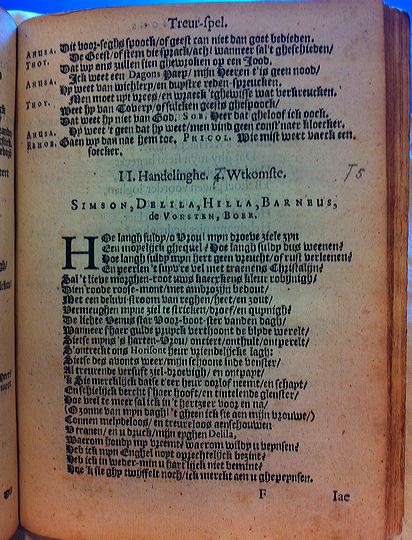 Treur-spel.
Dit voor-seghs spoock/ of geest can niet dan goet bedieden.
AHUSA. De Geest/ of stem die sprack/ ach! wanneer sal't gheschieden/
THOY. Dat wy ons zullen sien ghewroken op een Jood.
AHUSA. Ick weet een Dagons Paep/ mijn Heeren t'is geen nood/
Hy weet van wichlery/ en duystre reden-spreucken.
THOY. Men moet upt vrees/ en wraeck 'tghewisse wat verkreucken.
Weet hy van Tovery/ of sulcken geests ghespoock/
Dat weet hy niet van God. SOB. Heer dat gheloof ick oock.
AHUSA. Hy weet 't geen dat hy weet/ men vind geen const'naer kloecker.
REHOB. Gaen wy dan nae hem toe. PHICOL. Wie mist wert vaeck een
soecker.
II. Handelinghe. 4. Wtkomste.
T5
SIMSON, DELILA, HILLA, BARNEUS,
de VORSTEN, BOER.
HOe langh suldy/ o Vrou! mijn droeve ziele zijn
Een mopelijck ghequel? Hoe langh suldy dus weenen?
Hoe langh suldy mijn hert geen vreucht/ of rust verleenen?
En peerlen 't suyv're vel met traenens Christalijn?
Sal 't lieve morghen-root uws kaeckens kleur robijnigh/
Dien roode roose-mont/ met ambrozijn bedout/
Met een deluvi-stroom van reghen/ heet/ en zout/
Vermeughen mijne ziel te stricken/ droef/ en gupnigh?
De lichte Venus (der Voor-boot-ster vanden dagh/
Wanneer s'haer gulde pruyck verthoont de blijde werelt/
Siet se mijns 's harten-Vrou/ onciert/ onthult/ ontperelt/
S'ontreckt ons Horisont heur vriendelijcke lagh:
Siet se des avonts weer/ mijn schoone inde venster/
Al treurende versuft ziel-droevigh/ en ontpapt/
'k Sie mercklijck dat se t'eer heur oorlof neemt/ en schapt/
En schielijck bercht s'haer hooft/ en tintelende glenster/
Hoe veel te meer sal ick in 't hert zeer voor en na/
(O zonne van mijn dagh! 't gheen ick sie aen mijn vrouwe/)
Connen melydeloos/ en treureloos aenschouwen
U tranen/ en u druck/ mijn eyghen Delila,
Waerom houdy my vreemt? waerom wildy u veynsen?
Heb ick mijn Enghel noyt oprechtelijck bezint?
Heb ick in weder-min u hart'lijck niet bemint?
Hoe 'k sie ghy twijffelt noch/ ick merckt aen u ghepeynsen.
F Iae